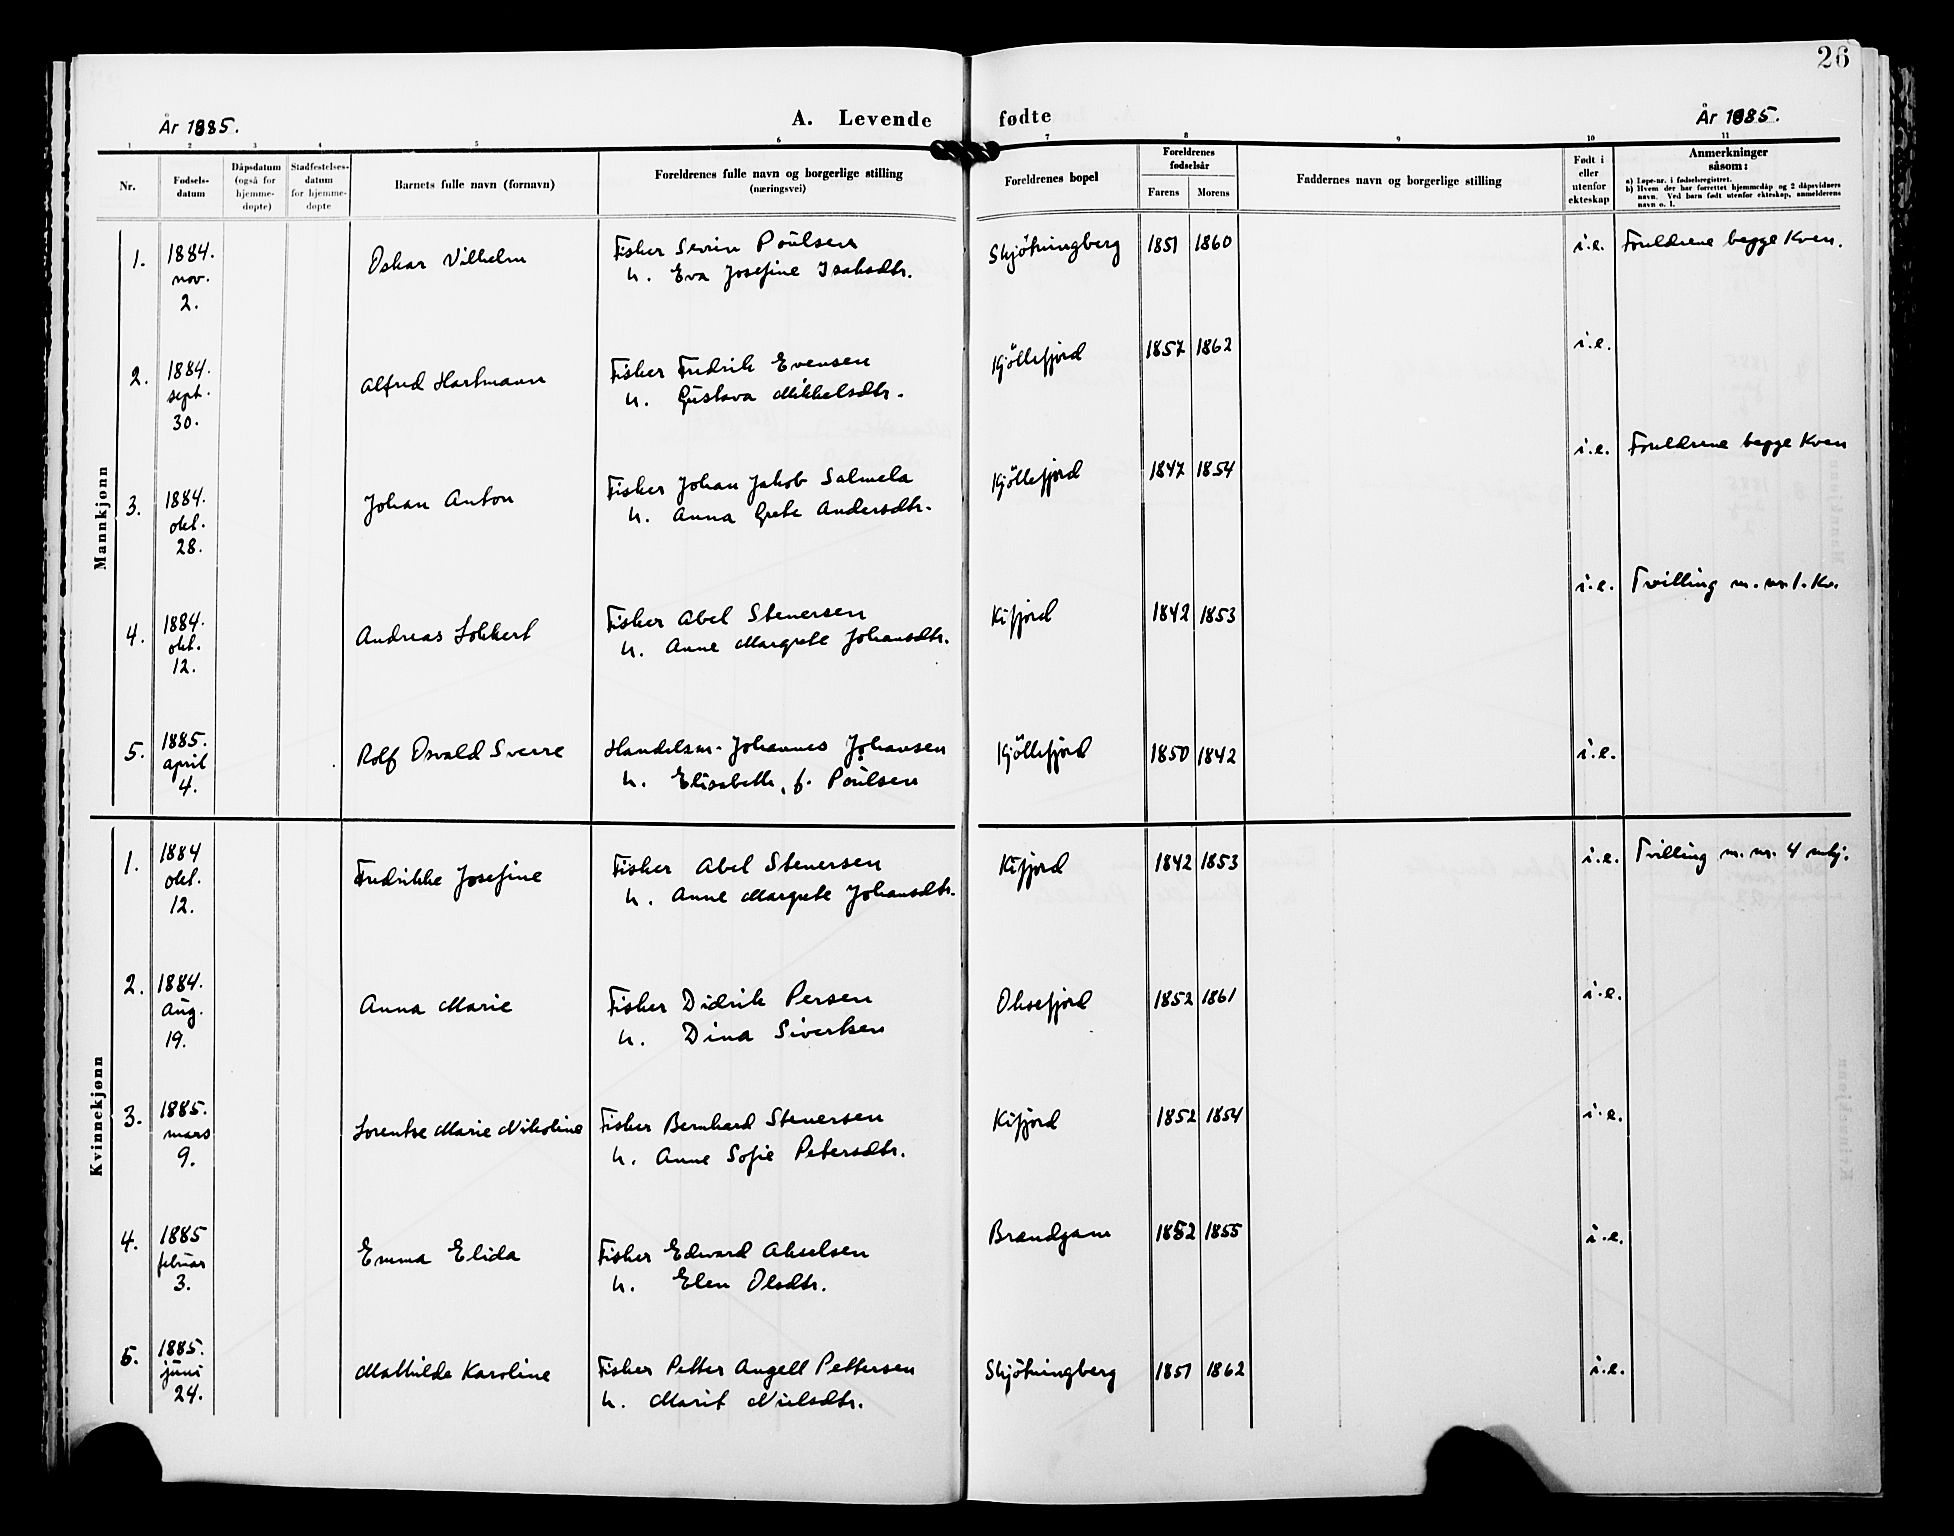 26
År 1885.
A. Levende fødte
År 1885.
1 2 3 4 5 6 7 8 9 10 11
Nr.
Fødsels-
datum
Dåpsdatum
(også for
hjemme-
døpte)
Stadfestelses-
datum
for hjemme-
døpte
Barnets fulle navn (fornavn)
Foreldrenes fulle navn og borgerlige stilling
(næringsvei)
Foreldrenes bopel
Foreldrenes
fødselsår
Farens Morens
Faddernes navn og borgerlige stilling
Født i
eller
utenfor
ekteskap
Anmerkninger
såsom:
a) Løpe-nr. i fødselsregistret.
b) Hvem der har forrettet hjemmedåp og 2 dåpsvidners
navn. Ved barn født utenfor ekteskap, anmelderens
navn o. l.
Mannkjønn
1. 1884. nov. 2. Oskar Vilhelm
Fisker Sevrin Poulsen
h. Eva Josefine Isaksdtr.
Skjötningberg 1851 1860 i.e. Foreldrene begge Kven.
2. 1884. sept. 30. Alfred Hartmann
Fisker Fredrik Evensen
h. Gustava Mikkelsdtr.
Kjöllefjord 1857 1862 i.e.
3. 1884. okt. 28. Johan Anton
Fisker Johan Jakob Salmela
h. Anna Grete Andersdtr.
Kjöllefjord 1847 1854 i.e. Foreldrene begge Kven
4. 1884. okt. 12. Andreas Lokkert
Fisker Abel Stenersen
h. Anne Margrete Johansdtr.
Kifjord 1842 1853 i.e. Tvilling m. nr 1. Kv.
5. 1885. april 4. Rolf Osvald Sverre
Handelsm. Johannes Johansen
h. Elisabeth, f. Poulsen
Kjöllefjord 1850 1842 i.e.
Kvinnekjønn
1. 1884 okt. 12. Fredrikke Josefine
Fisker Abel Stenersen
h. Anne Margrete Johansdtr.
Kifjord 1842 1853 i.e. Tvilling m. nr. 4 mkj.
2. 1884. Aug. 19. Anna Marie
Fisker Didrik Persen
h. Dina Sivertsen
Oksefjord 1852 1861 i.e.
3. 1885. mars 9. Lorentse Marie Nikoline
Fisker Bernhard Stenersen
h. Anne Sofie Petersdtr.
Kifjord 1852 1854 i.e.
4. 1885 februar 3. Emma Elida
Fisker Edvard Akselsen
h. Elen Olsdtr.
Brændgam 1852 1855 i.e.
5. 1885. juni 24. Mathilde Karoline
Fisker Petter Angell Pettersen
h. Marit Nielsdtr.
Skjötningberg 1851 1862 i.e.